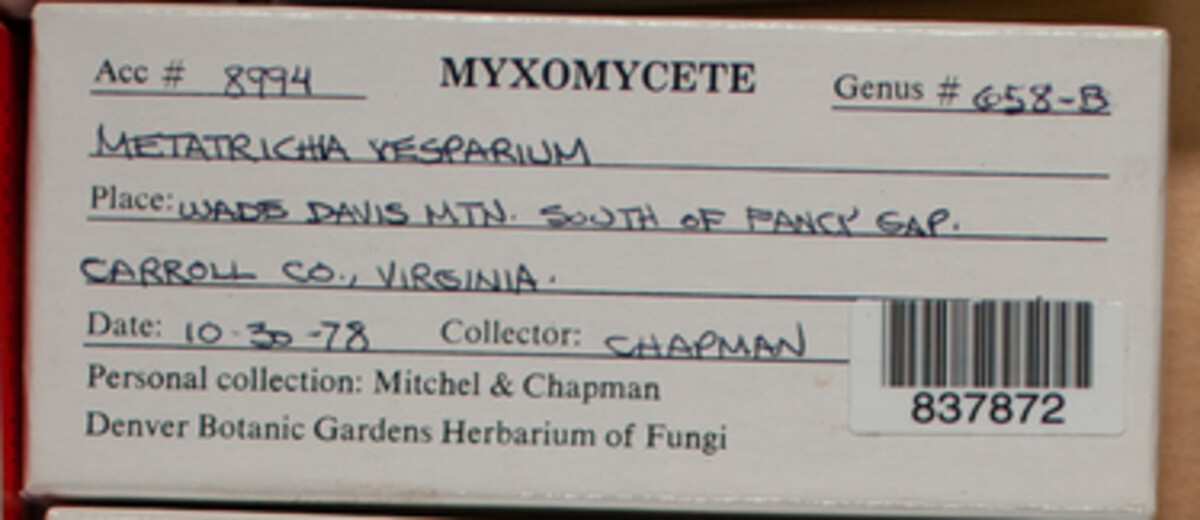 Acc # 8994 MYXOMYCETE Genus # 658-B
METATRICHIA VESPARIUM
Place: WADE DAVIS MTN. SOUTH OF FANCY GAP.
CARROLL CO., VIRGINIA.
Date: 10-30-78 Collector: CHAPMAN
Personal collection: Mitchel & Chapman
Denver Botanic Gardens Herbarium of Fungi
837872